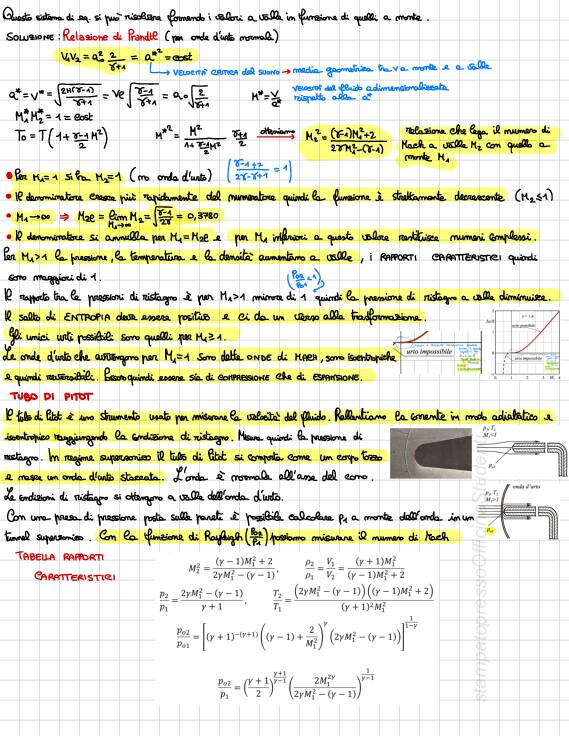 Questo sistema di eq. si può risolvere fornendo i valori a valle in funzione di quelli a monte.
SOLUZIONE: Relazione di Prandtl (per onde d'urto normale)
V₁V₂ = a₀² 2/(γ+1) = a*² = cost
↳ VELOCITÀ CRITICA DEL SUONO → media geometrica tra v a monte e a valle
a* = V* = √(2H(γ-1)/(γ+1)) = Ve √((γ-1)/(γ+1)) = a₀ √(2/(γ+1)) M* = V/a* velocità del fluido adimensionalizzata rispetto alla a*
M₁* M₂* = 1 = cost
T₀ = T(1 + (γ-1)/2 M²) M*² = M²/(1 + (γ-1)/2 M²) (γ+1)/2 otteniamo → M₂² = ((γ-1)M₁²+2)/(2γM₁²-(γ-1)) relazione che lega il numero di Mach a valle M₂ con quello a monte M₁
• Per M₁=1 si ha M₂=1 (no onda d'urto) ((γ-1+2)/(2γ-γ+1) = 1)
• Il denominatore cresce più rapidamente del numeratore quindi la funzione è strettamente decrescente (M₂≤1)
• M₁→∞ ⇒ M₂ℓ = lim M₂ = √((γ-1)/2γ) = 0,3780
M₁→∞
• Il denominatore si annulla per M₁=M₂ℓ e per M₁ inferiori a questo valore restituisce numeri complessi.
Per M₁>1 la pressione, la temperatura e la densità aumentano a valle, i RAPPORTI CARATTERISTICI quindi
sono maggiori di 1. (P₀₂/P₀₁ < 1)
Il rapporto tra le pressioni di ristagno è per M₁>1 minore di 1 quindi la pressione di ristagno a valle diminuisce.
Il salto di ENTROPIA deve essere positivo e ci da un verso alla trasformazione.
Gli unici urti possibili sono quelli per M₁≥1.
Le onde d'urto che avvengono per M₁=1 sono dette ONDE DI MACH, sono isentropiche
e quindi reversibili. Possono quindi essere sia di COMPRESSIONE che di ESPANSIONE.
urto impossibile
γ = 1.4
urto possibile
urto impossibile
TUBO DI PITOT
Il tubo di Pitot è uno strumento usato per misurare la velocità del fluido. Rallentiamo la corrente in modo adiabatico e
isentropico raggiungendo la condizione di ristagno. Misura quindi la pressione di
ristagno. In regime supersonico il tubo di Pitot si comporta come un corpo tozzo
e nasce un'onda d'urto staccata. L'onda è normale all'asse del cono.
Le condizioni di ristagno si ottengono a valle dell'onda d'urto.
Con una presa di pressione posta sulle pareti è possibile calcolare P₁ a monte dell'onda in un
tunnel supersonico. Con la funzione di Rayleigh (P₀₂/P₁) possiamo misurare il numero di Mach
p, T,
M₁<1
onda d'urto
p, T,
M₁>1
TABELLA RAPPORTI
CARATTERISTICI
M₂² = ((γ − 1)M₁² + 2)/(2γM₁² − (γ − 1)), ρ₂/ρ₁ = V₁/V₂ = (γ + 1)M₁²/((γ − 1)M₁² + 2)
p₂/p₁ = (2γM₁² − (γ − 1))/(γ + 1), T₂/T₁ = (2γM₁² − (γ − 1))((γ − 1)M₁² + 2)/((γ + 1)²M₁²)
p₀₂/p₀₁ = [(γ + 1)^−(γ+1) ((γ − 1) + 2/M₁²)^γ (2γM₁² − (γ − 1))]^(1/(1−γ))
p₀₂/p₁ = ((γ + 1)/2)^((γ+1)/(γ−1)) (2M₁^2γ/(2γM₁² − (γ − 1)))^(1/(γ−1))